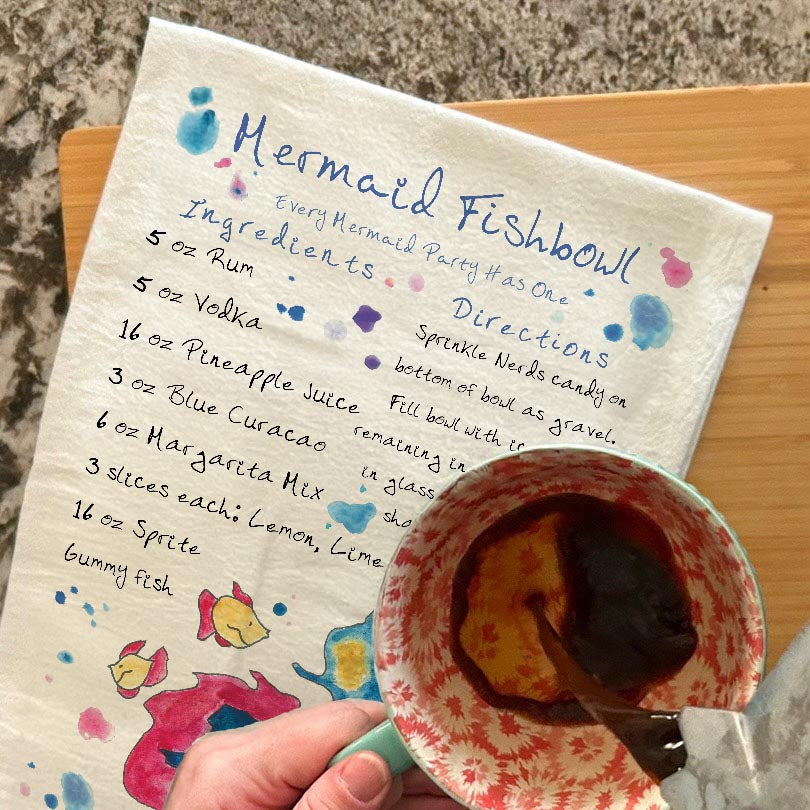 Mermaid Fishbowl
Every Mermaid Party Has One
Ingredients
5 oz Rum
5 oz Vodka
16 oz Pineapple Juice
3 oz Blue Curacao
6 oz Margarita Mix
3 slices each: Lemon, Lime
16 oz Sprite
Gummy fish
Directions
Sprinkle Nerds candy on
bottom of bowl as gravel.
Fill bowl with
remaining
in glass